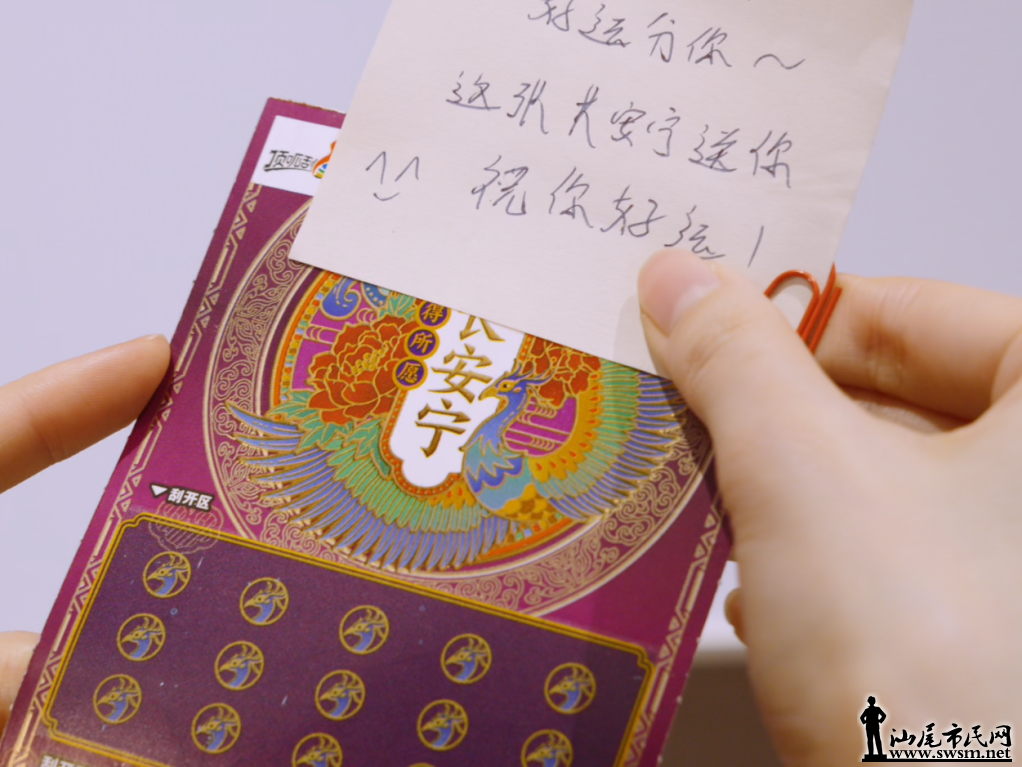 好运分你～
这张长安宁送你
^‿^ 祝你好运！
顶呱刮
得所愿
长安宁
刮开区
刮开
汕尾市民网
www.swsm.net